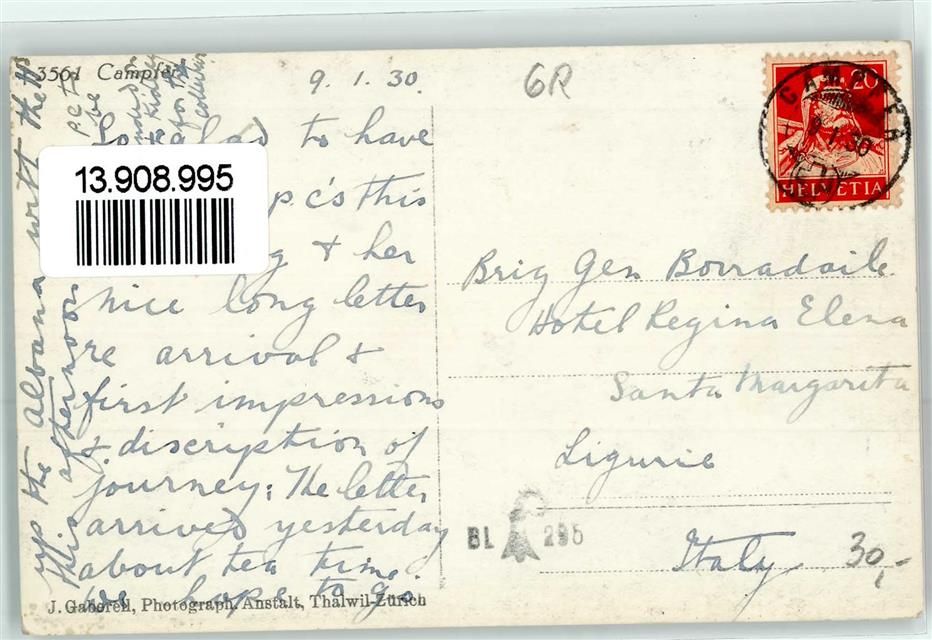 3561 Campfér
9. 1. 30.
6R
20
HELVETIA
CAMPFER
13.908.995
to have
p.c's this
& her
nice long letter
re arrival &
first impressions
& discription of
journey: The letter
arrived yesterday
about tea time.
We hope to go
up the Albana with the
this afternoon
Brig Gen Borradaile
Hotel Regina Elena
Santa Margarita
Ligurie
Italy
BL 295
30,-
J. Gaberell, Photograph. Anstalt, Thalwil-Zürich